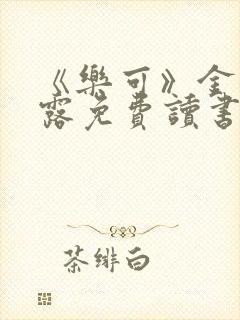 《樂可》金
露免費讀書
茶绯白